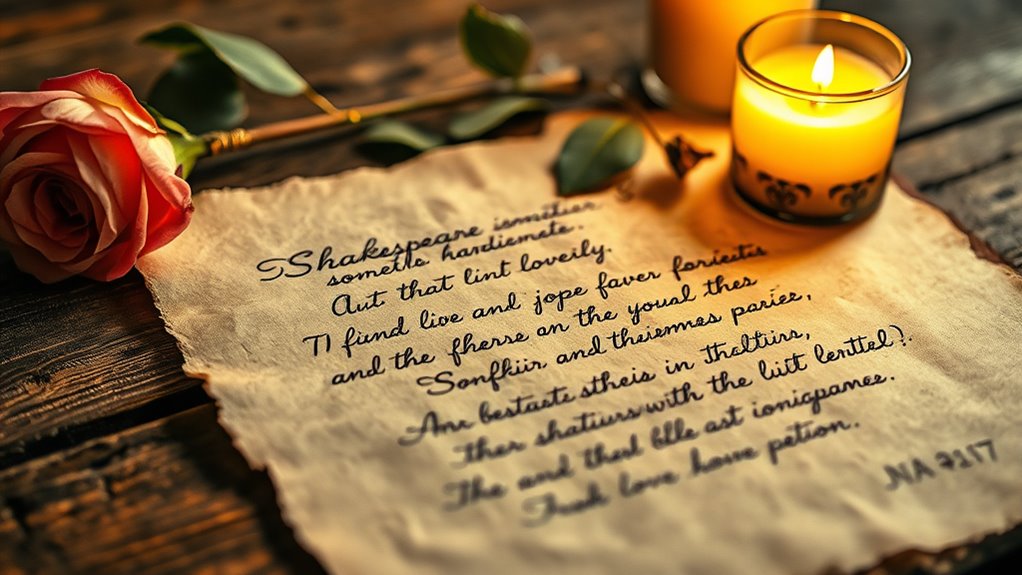 Shakespeare ismitier
sometle hardiemete.
Aut that lint loverly.
TI fiund live and jope faver forieutis
and the fherse an the youal thes
Sonfkiir and theiemmes pariee,
Anr bestaste stheis in
Ther shatiurs with the liit lenttel?.
The and theel blle ast ionigpanes.
love home petion.